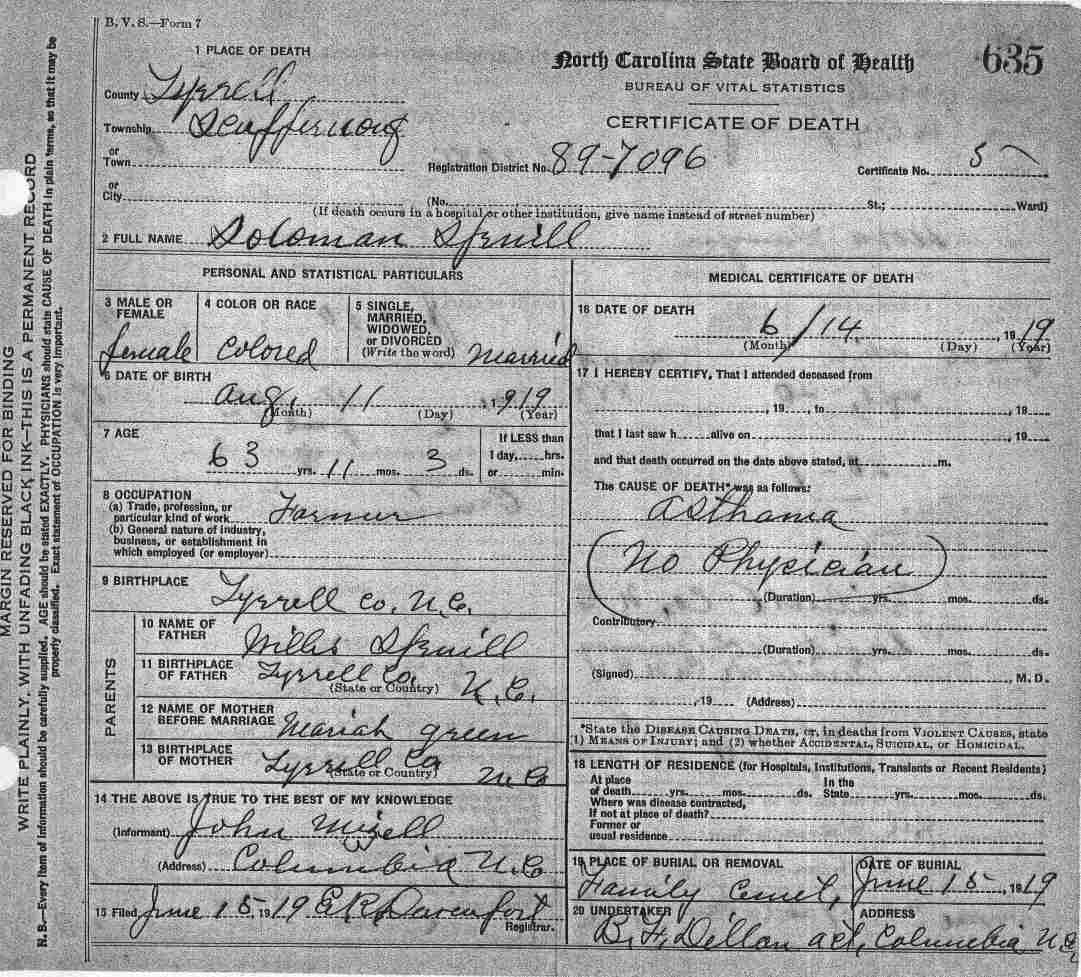 B. V. S.—Form 7
1 PLACE OF DEATH
County Tyrrell
Township Scuppernong
or
Town
or
City
North Carolina State Board of Health
635
BUREAU OF VITAL STATISTICS
CERTIFICATE OF DEATH
Registration District No. 89-7096
Certificate No. 5
(No. St.; Ward)
(If death occurs in a hospital or other institution, give name instead of street number)
2 FULL NAME Soloman Spruill
PERSONAL AND STATISTICAL PARTICULARS
3 MALE OR
FEMALE
female
4 COLOR OR RACE
Colored
5 SINGLE,
MARRIED,
WIDOWED,
or DIVORCED
(Write the word) Married
6 DATE OF BIRTH
Aug, 11 1919
(Month) (Day) (Year)
7 AGE
63 yrs. 11 mos. 3 ds.
If LESS than
1 day, hrs.
or min.
8 OCCUPATION
(a) Trade, profession, or
particular kind of work Farmer
(b) General nature of industry,
business, or establishment in
which employed (or employer)
9 BIRTHPLACE
Tyrrell Co. N.C.
PARENTS
10 NAME OF
FATHER
Willis Spruill
11 BIRTHPLACE
OF FATHER
Tyrrell Co.
(State or Country) N.C.
12 NAME OF MOTHER
BEFORE MARRIAGE
Mariah green
13 BIRTHPLACE
OF MOTHER
Tyrrell Co
(State or Country) N C
14 THE ABOVE IS TRUE TO THE BEST OF MY KNOWLEDGE
(Informant) John Mizell
(Address) Columbia N.C
15 Filed June 15, 1919 E.R. Davenport
Registrar.
MEDICAL CERTIFICATE OF DEATH
16 DATE OF DEATH
6/14, 1919
(Month) (Day) (Year)
17 I HEREBY CERTIFY, That I attended deceased from
, 19 , to , 19 ,
that I last saw h alive on , 19 ,
and that death occurred on the date above stated, at m.
The CAUSE OF DEATH* was as follows:
Asthama
No Physician
(Duration) yrs. mos. ds.
Contributory
(Duration) yrs. mos. ds.
(Signed) , M. D.
, 19 (Address)
*State the DISEASE CAUSING DEATH, or, in deaths from VIOLENT CAUSES, state
(1) MEANS OF INJURY; and (2) whether ACCIDENTAL, SUICIDAL, or HOMICIDAL.
18 LENGTH OF RESIDENCE (for Hospitals, Institutions, Transients or Recent Residents)
At place
of death yrs. mos. ds.
In the
State yrs. mos. ds.
Where was disease contracted,
If not at place of death?
Former or
usual residence
19 PLACE OF BURIAL OR REMOVAL
Family Cemet,
DATE OF BURIAL
June 15, 1919
20 UNDERTAKER
B. F. Dillon act,
ADDRESS
Columbia N.C
MARGIN RESERVED FOR BINDING
WRITE PLAINLY, WITH UNFADING BLACK INK—THIS IS A PERMANENT RECORD
N. B.—Every item of information should be carefully supplied. AGE should be stated EXACTLY. PHYSICIANS should state CAUSE OF DEATH in plain terms, so that it may be
properly classified. Exact statement of OCCUPATION is very important.